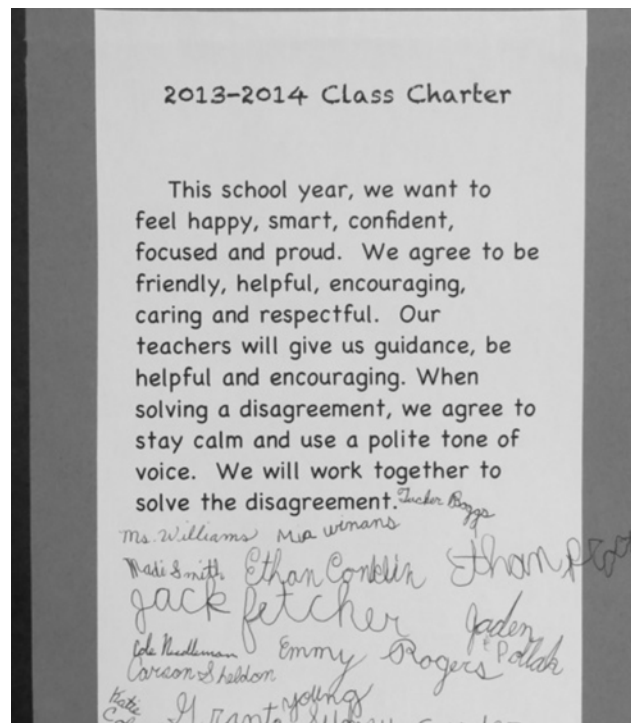 2013-2014 Class Charter
This school year, we want to
feel happy, smart, confident,
focused and proud. We agree to be
friendly, helpful, encouraging,
caring and respectful. Our
teachers will give us guidance, be
helpful and encouraging. When
solving a disagreement, we agree to
stay calm and use a polite tone of
voice. We will work together to
solve the disagreement. Tucker Boggs
Ms. Williams Mia Winans
Madi Smith Ethan Conklin
Jack fetcher Jaden
Cole Needleman Emmy Rogers Pollak
Carson Sheldon
Katie Grant Young